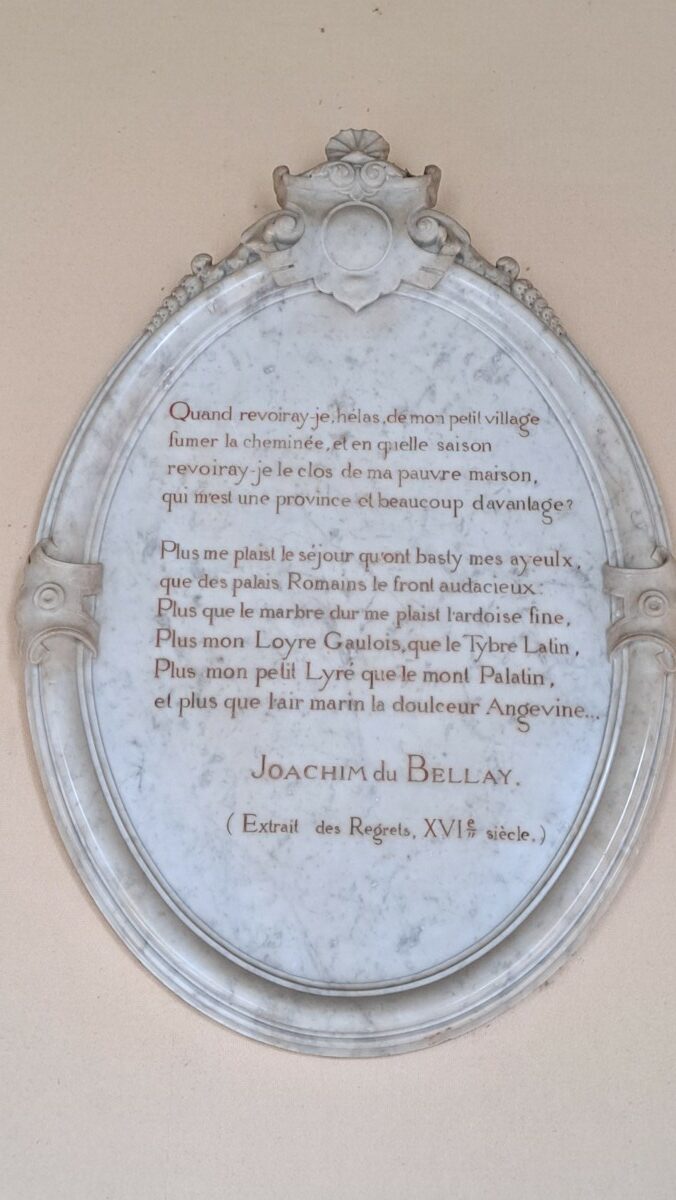 Quand revoiray-je, hélas, de mon petit village
fumer la cheminée, et en quelle saison
revoiray-je le clos de ma pauvre maison,
qui m'est une province et beaucoup davantage?
Plus me plaist le séjour qu'ont basty mes ayeulx,
que des palais Romains le front audacieux:
Plus que le marbre dur me plaist l'ardoise fine,
Plus mon Loyre Gaulois, que le Tybre Latin,
Plus mon petit Lyré que le mont Palatin,
et plus que l'air marin la doulceur Angevine...
JOACHIM du BELLAY.
(Extrait des Regrets, XVIe siècle.)